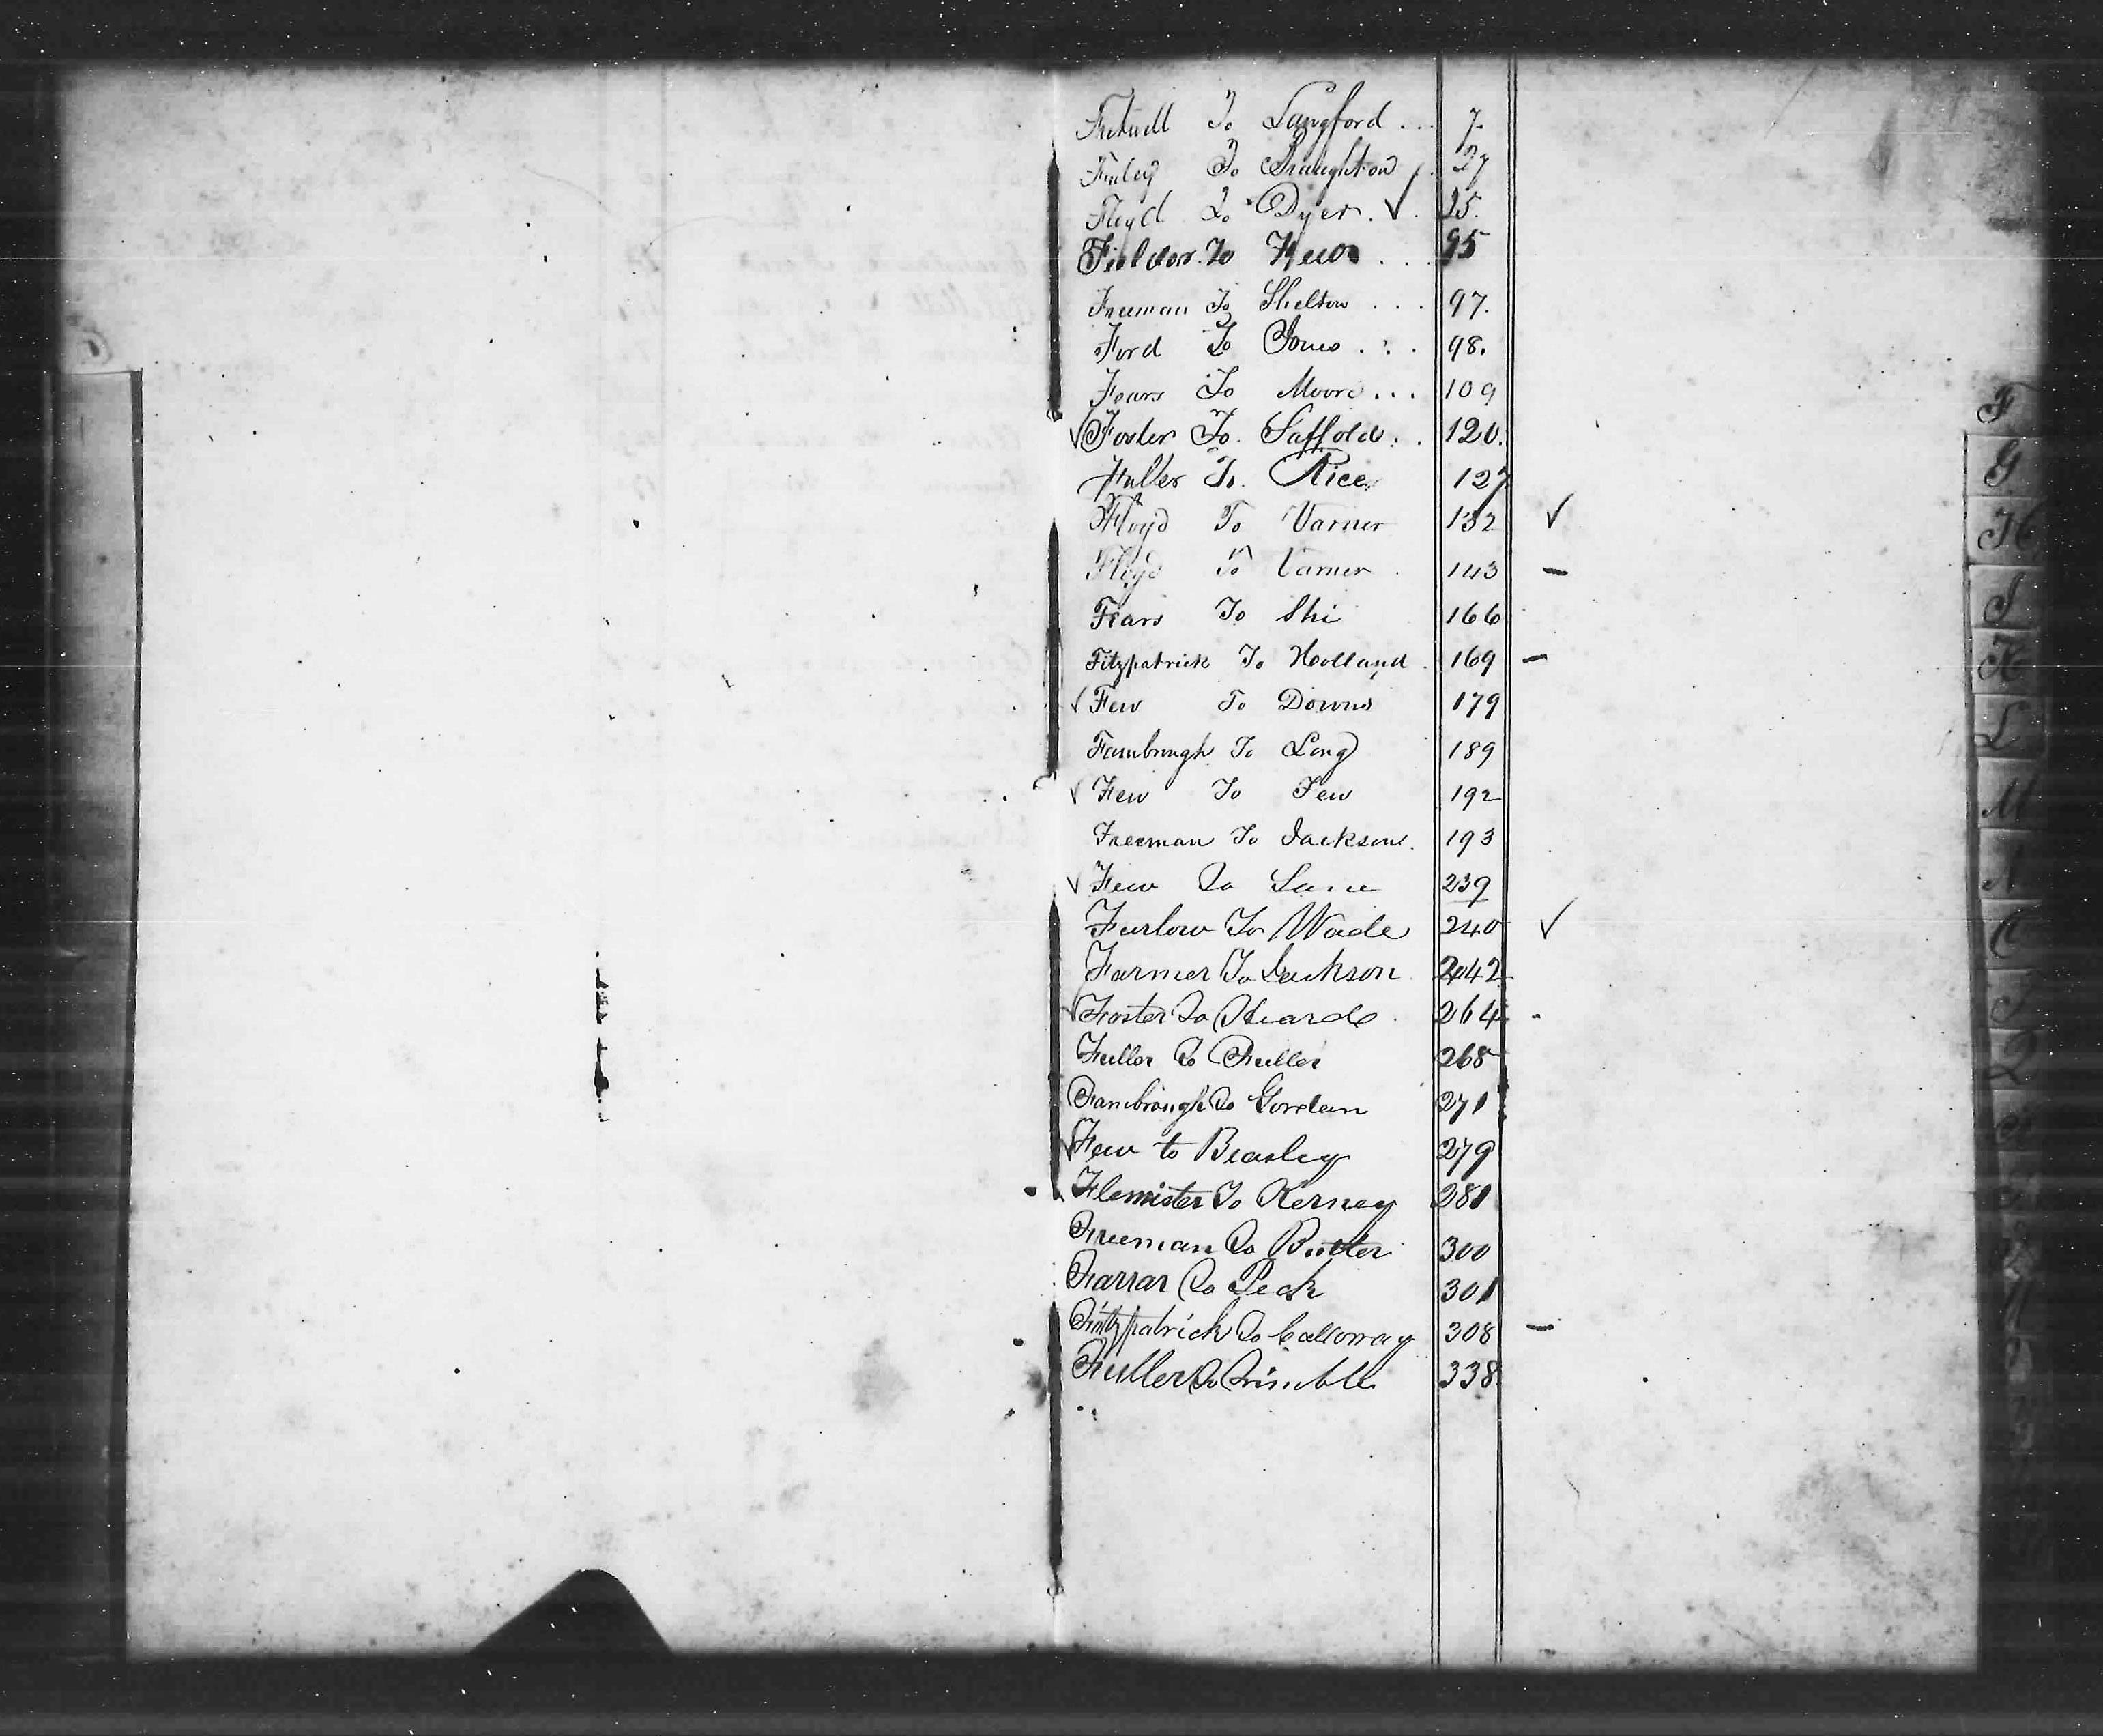 Fretwell To Langford ... 7.
Finley To Draughton . 27
Floyd To Dyer. √ . 35.
Fielder To . . 95
Freeman To Shelton ... 97.
Ford To Jones . : . 98.
Fears To Moore ... 109
√ Foster To. Saffold . . 120.
Fuller To. Rice 127
Floyd To Varner 132 √
Floyd To Varner . 143 –
Fears To Shi 166
Fitzpatrick To Holland . 169 –
√ Few To Downs 179
Fambrough To Long 189
√ Few To Few 192
Freeman To Jackson. 193
√ Few To Lane 239
Furlow To Wade 240 √
Farmer To Jackson 242
√ Foster To Heard . 264 -
Fuller To Fuller 268
Fambrough To Gordan 271
√ Few to Beasley 279
Flemister To Kerney 281
Freeman To Butler 300
Farrar To Peck 301
Fitzpatrick To Calloway 308 –
Fuller To Trimble 338
F
G
H
I
K
L
M
N
O
P
Q